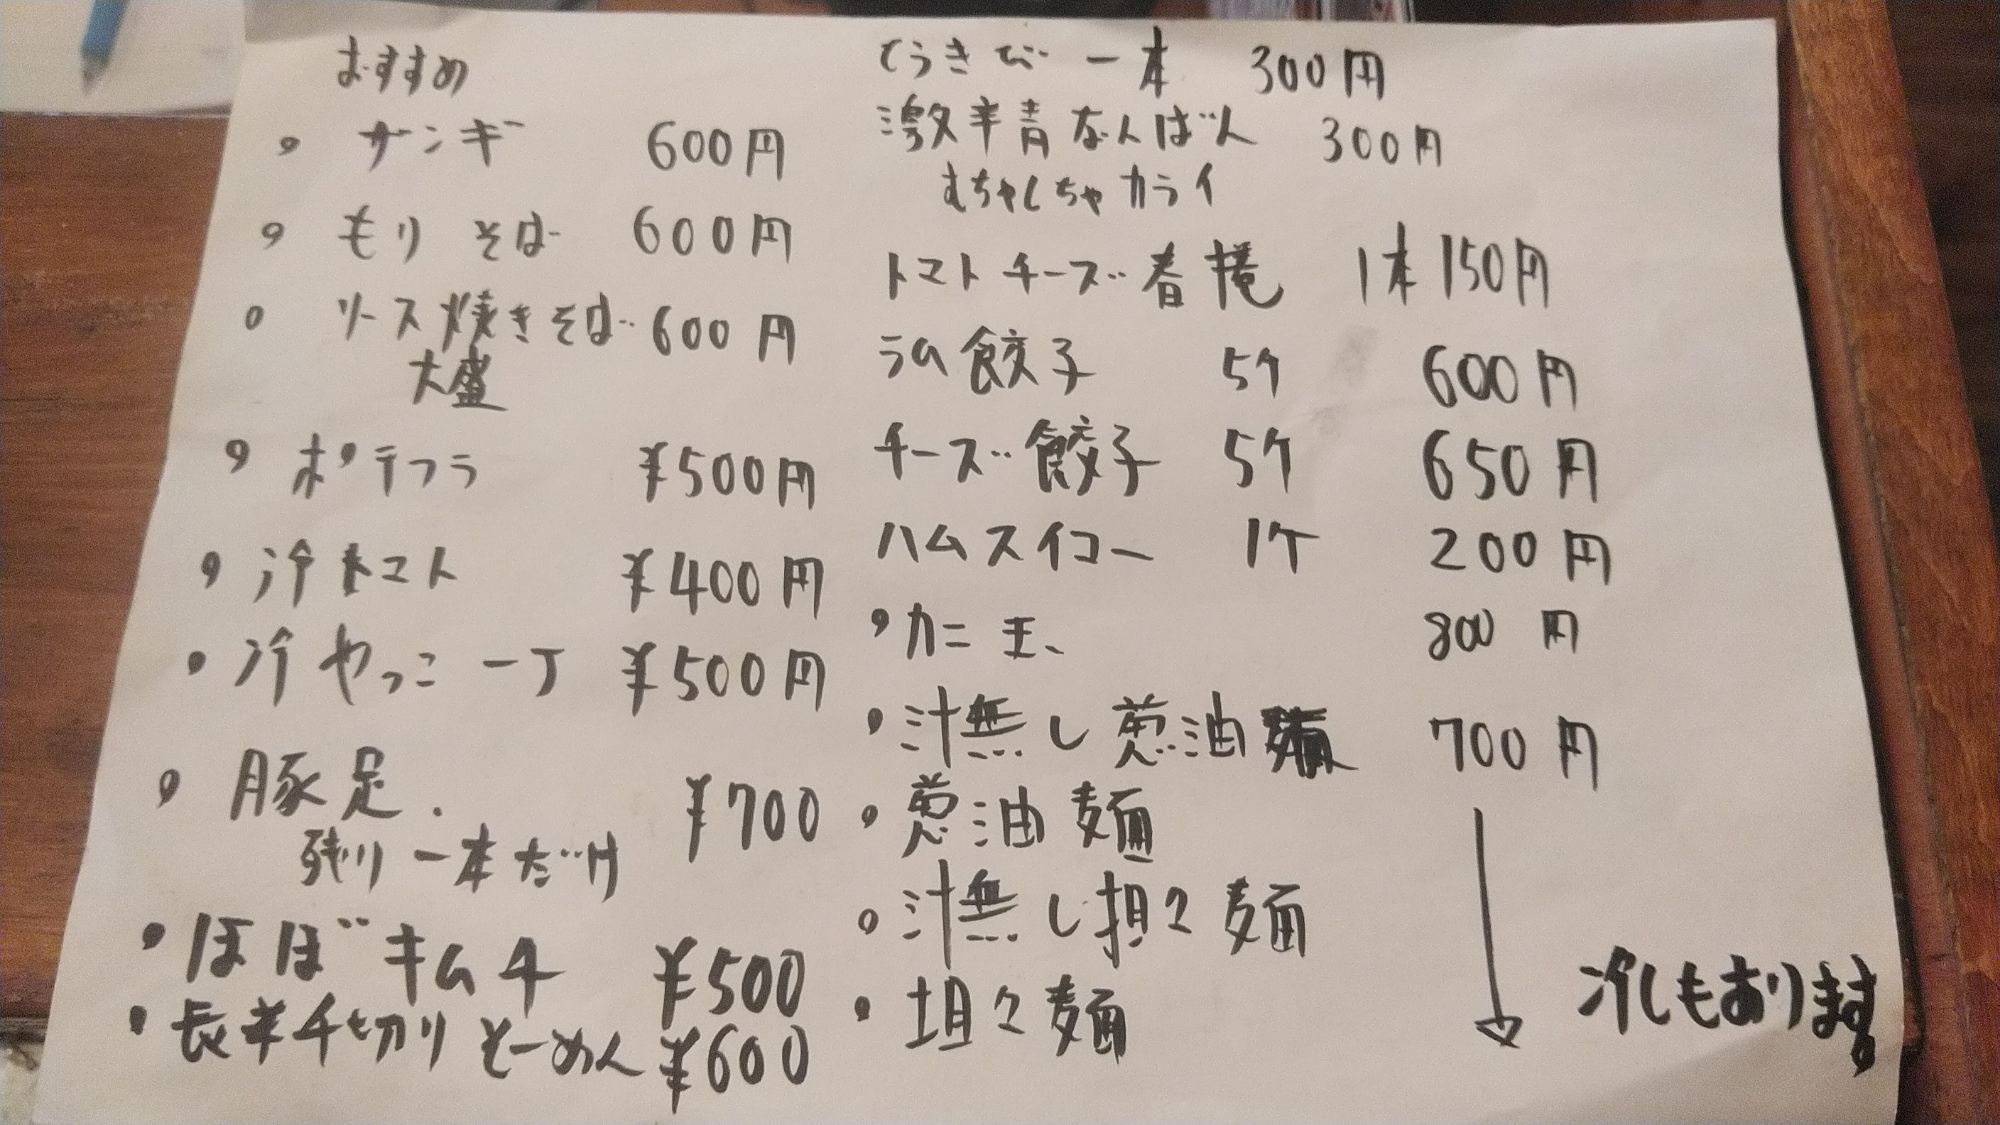 おすすめ
ザンギ 600円
もりそば 600円
ソース焼きそば 600円
大盛
ポテフラ ¥500円
冷トマト ¥400円
冷やっこ 一丁 ¥500円
豚足. ¥700
残り一本だけ
ほぼキムチ ¥500
長芋千切りそーめん ¥600
とうきび 一本 300円
激辛青なんばん 300円
むちゃくちゃカライ
トマトチーズ春捲 1本 150円
ラム餃子 5ケ 600円
チーズ餃子 5ケ 650円
ハムスイコー 1ケ 200円
カニ玉 800円
汁無し葱油麺 700円
葱油麺
汁無し担々麺
坦々麺
冷しもあります